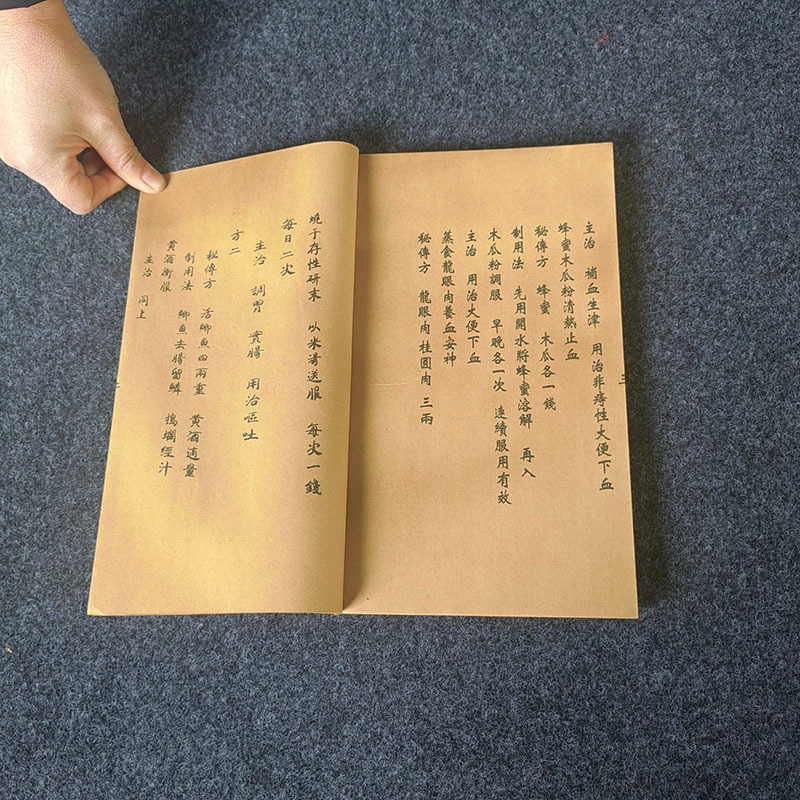 主治 補血生津 用治非痔性大便下血
蜂蜜木瓜粉清熱止血
秘傳方 蜂蜜 木瓜各一錢
制用法 先用開水將蜂蜜溶解 再入
木瓜粉調服 早晚各一次 連續服用有效
主治 用治大便下血
蒸食龍眼肉養血安神
秘傳方 龍眼肉桂圓肉 三兩
燒于存性研末 以米湯送服 每次一錢
每日二次
主治 調胃 實腸 用治嘔吐
方二
秘傳方 活鯽魚四兩重 黄酒適量
制用法 鯽魚去腸留鱗 搗爛經汁
黄酒衝服
主治 同上